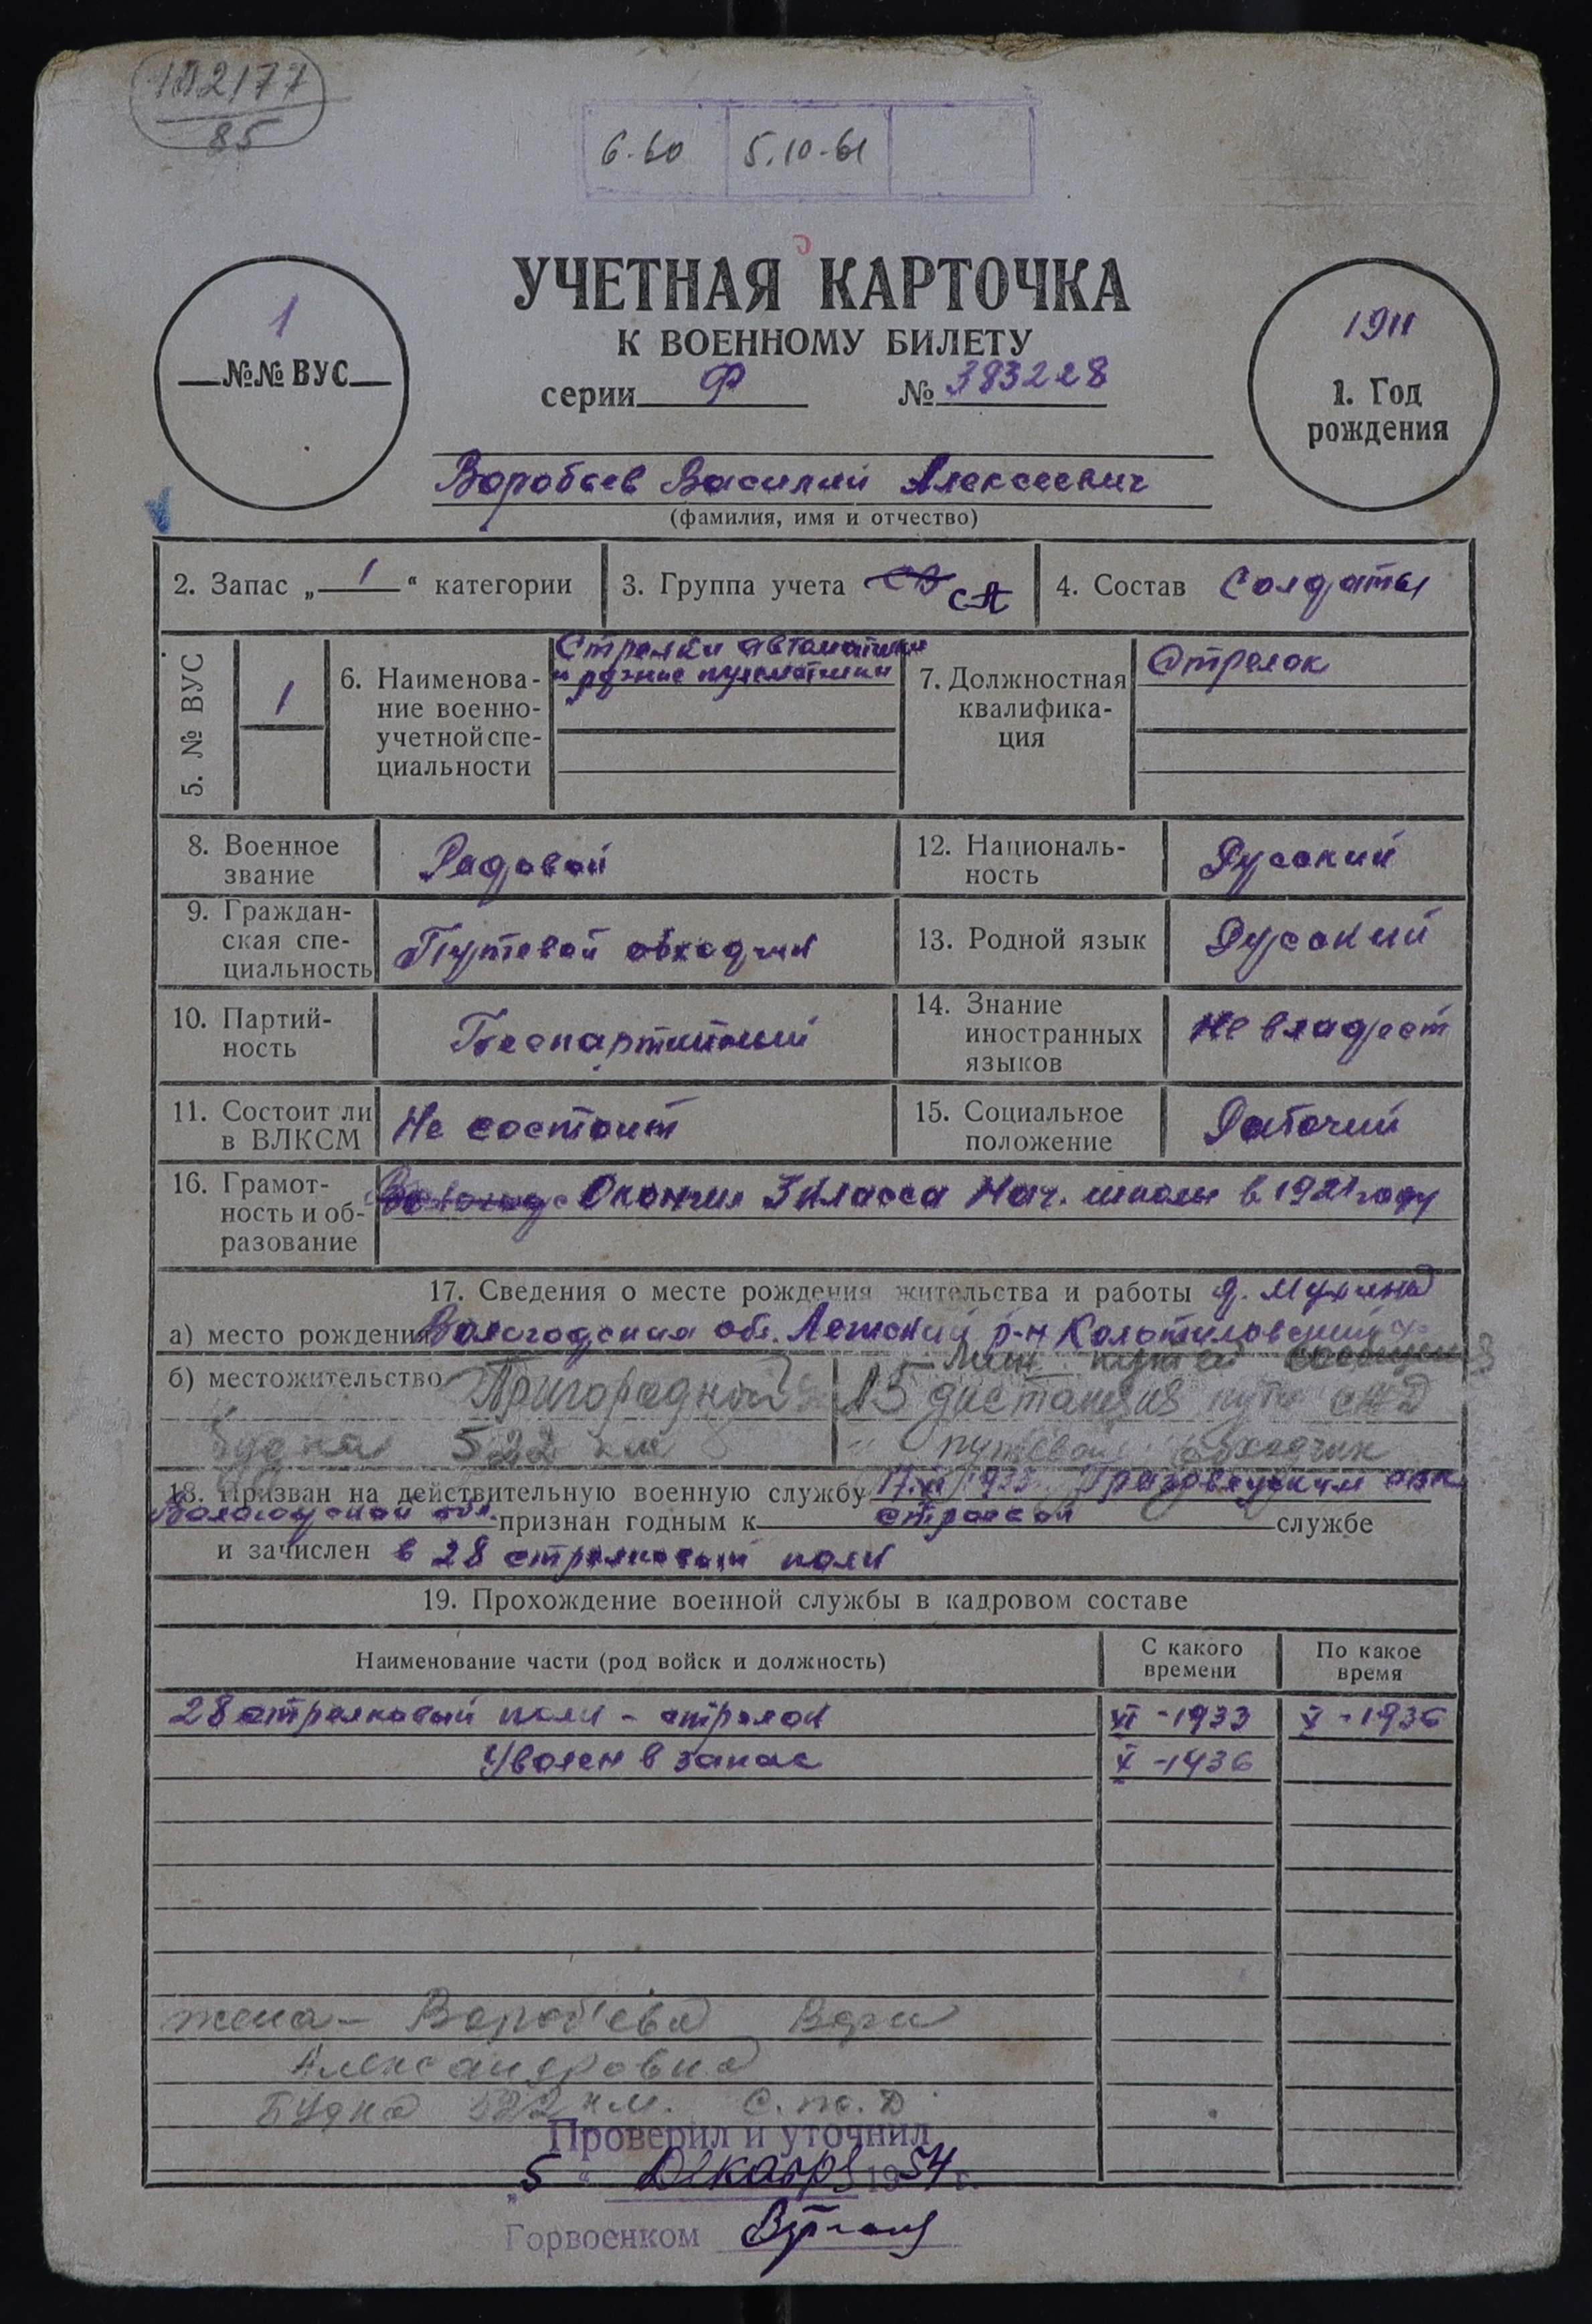 102177
85
6-60 5.10-61
УЧЕТНАЯ КАРТОЧКА
К ВОЕННОМУ БИЛЕТУ
серии Ф № 383228
1
№№ ВУС
1911
1. Год
рождения
Воробьев Василий Алексеевич
(фамилия, имя и отчество)
2. Запас „ 1 “ категории
3. Группа учета СА
4. Состав Солдаты
5. № ВУС
1
6. Наименова-
ние военно-
учетной спе-
циальности
Стрелки автоматчики
и ручные пулеметчики
7. Должностная
квалифика-
ция
Стрелок
8. Военное
звание
Рядовой
12. Националь-
ность
Русский
9. Граждан-
ская спе-
циальность
Путевой обходчик
13. Родной язык Русский
10. Партий-
ность
Беспартийный
14. Знание
иностранных
языков
Не владеет
11. Состоит ли
в ВЛКСМ
Не состоит
15. Социальное
положение
Рабочий
16. Грамот-
ность и об-
разование
Окончил 3 класса Нач. школы в 1921 году
17. Сведения о месте рождения жительства и работы д. Мухино
а) место рождения Вологодская обл. р-н
б) местожительство Пригородная
15 дистанция пути
будка 522 км
путевой обходчик
18. Призван на действительную военную службу
Вологодской обл. признан годным к строевой службе
и зачислен в 28 стрелковый полк
19. Прохождение военной службы в кадровом составе
Наименование части (род войск и должность)
С какого
времени
По какое
время
28 стрелковый полк - стрелок VI-1933 X-1936
Уволен в запас X-1936
жена - Воробьева
Александровна
Будка 522 км.
Проверил и уточнил
„5“ Декабря 1954 г.
Горвоенком